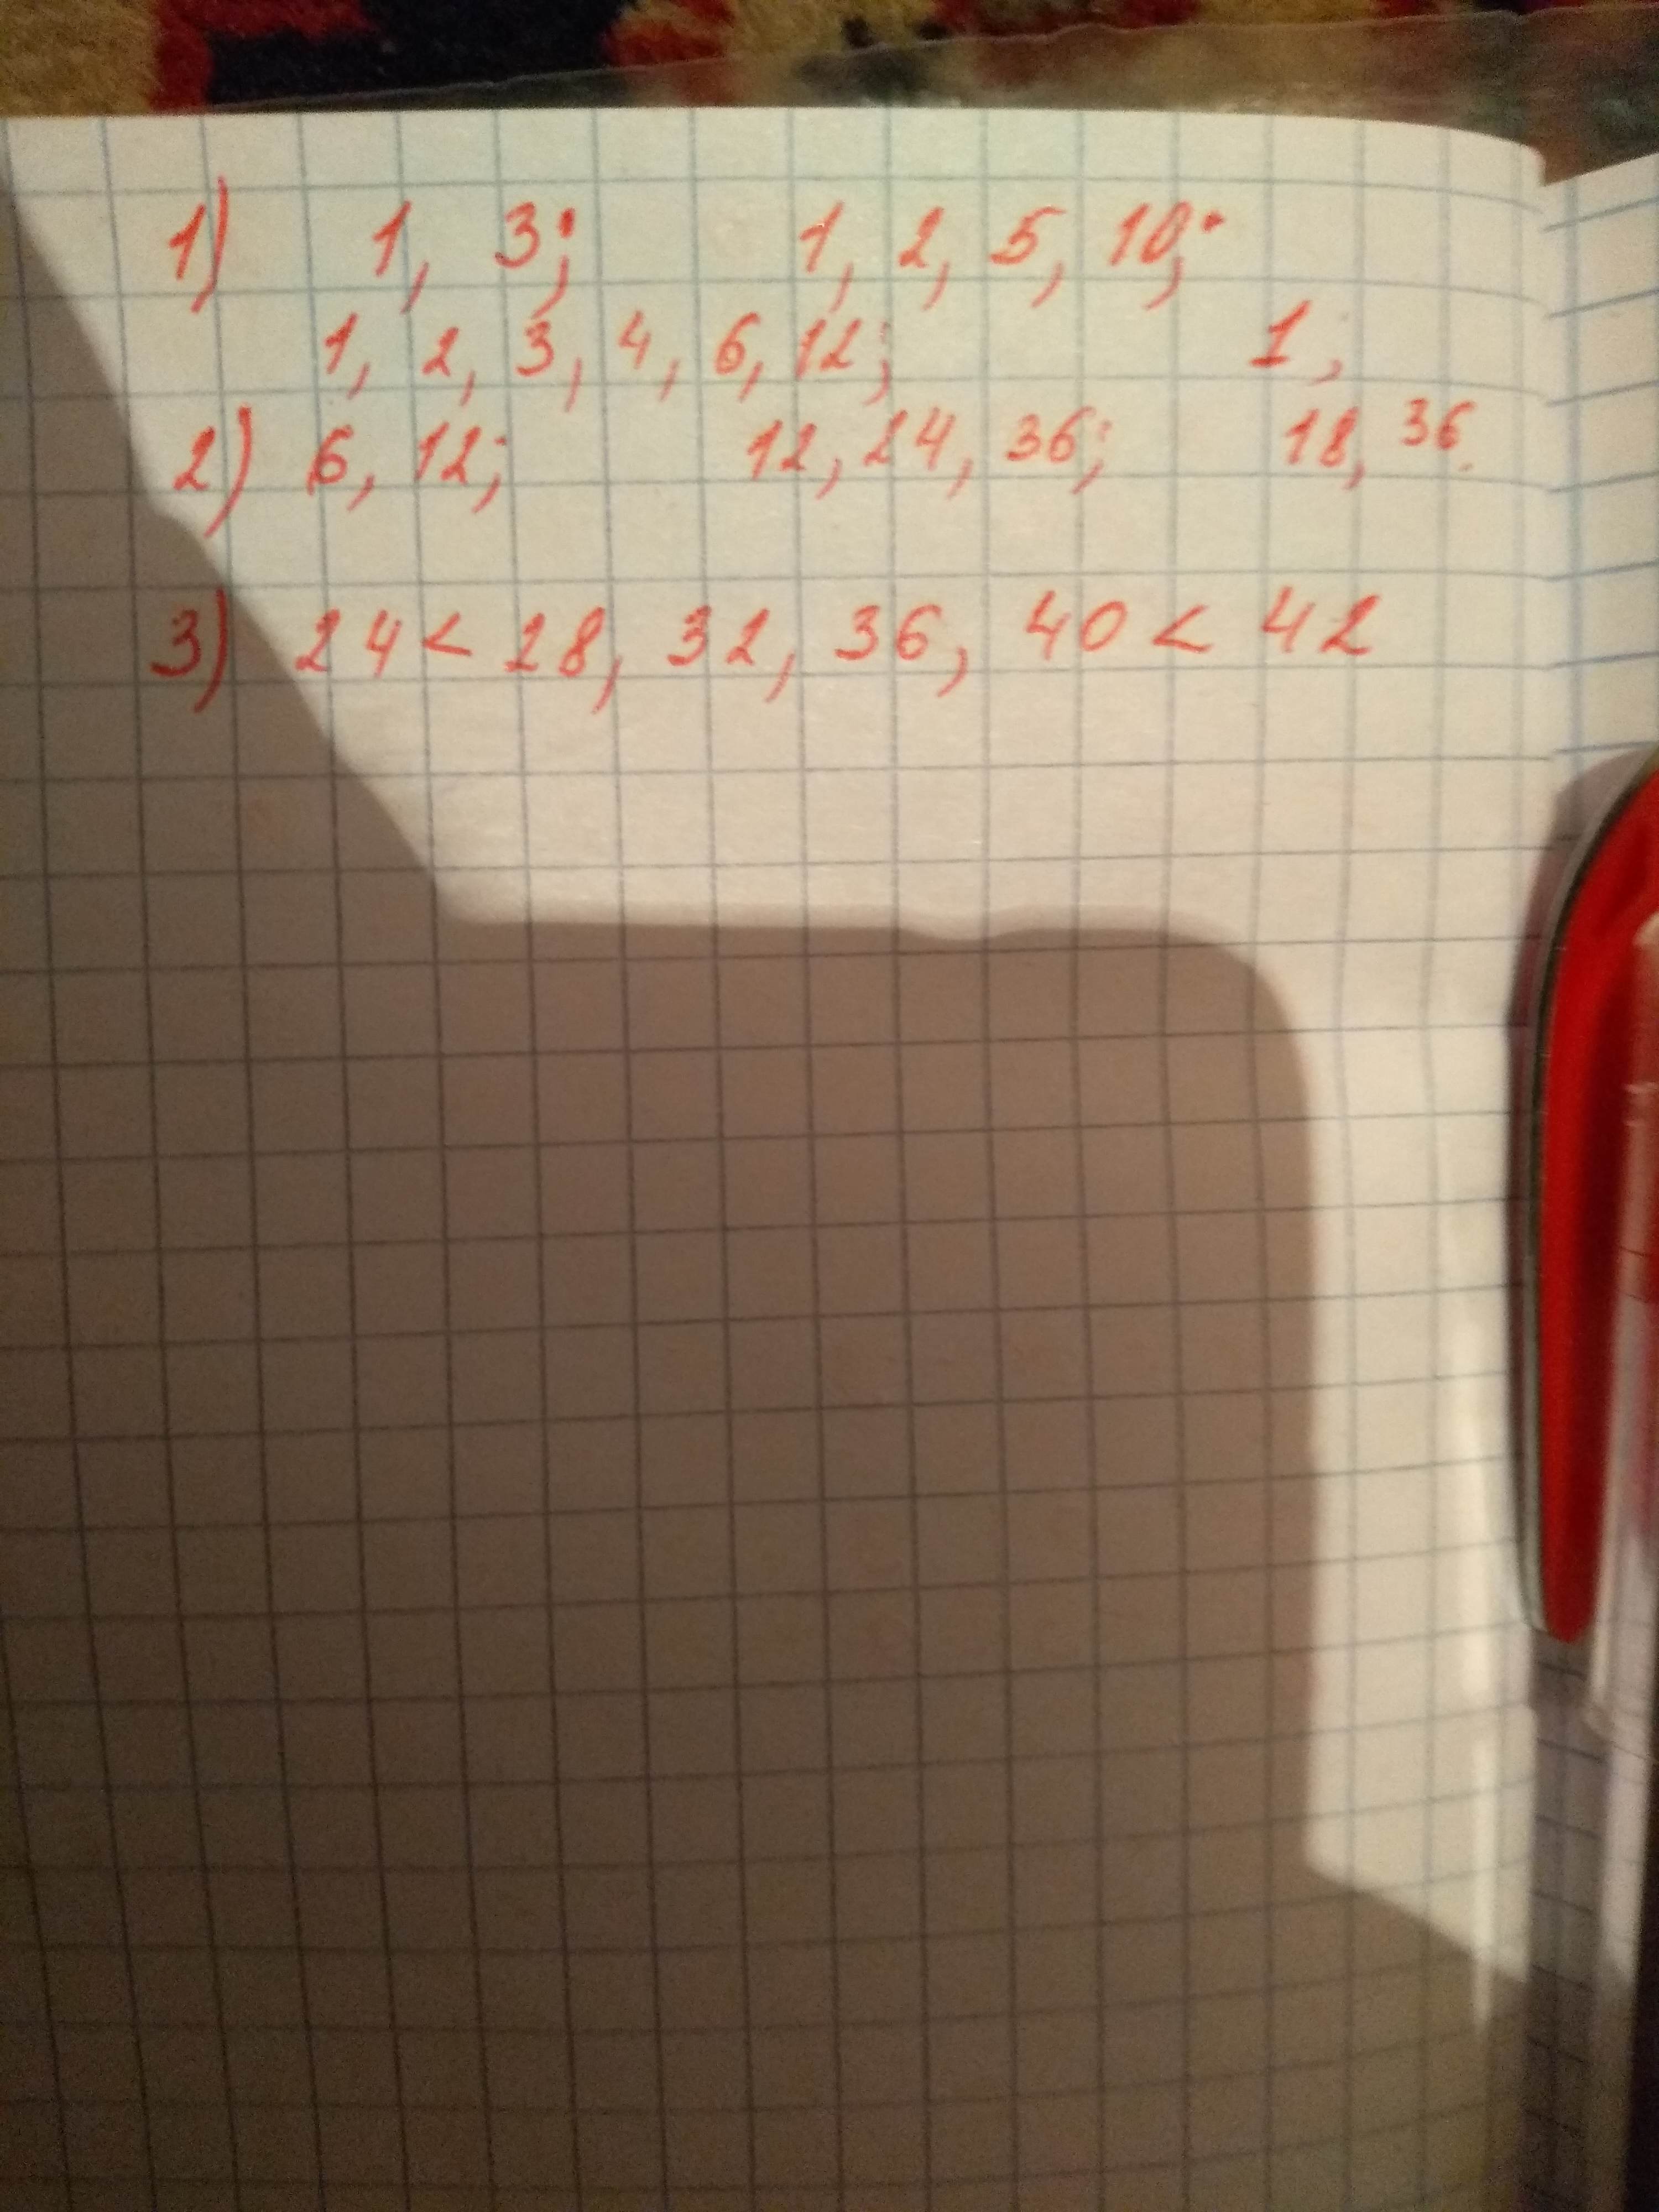 1) 1, 3; 1, 2, 5, 10;
1, 2, 3, 4, 6, 12; 1;
2) 6, 12; 12, 24, 36; 18, 36.
3) 24 < 28, 32, 36, 40 < 42